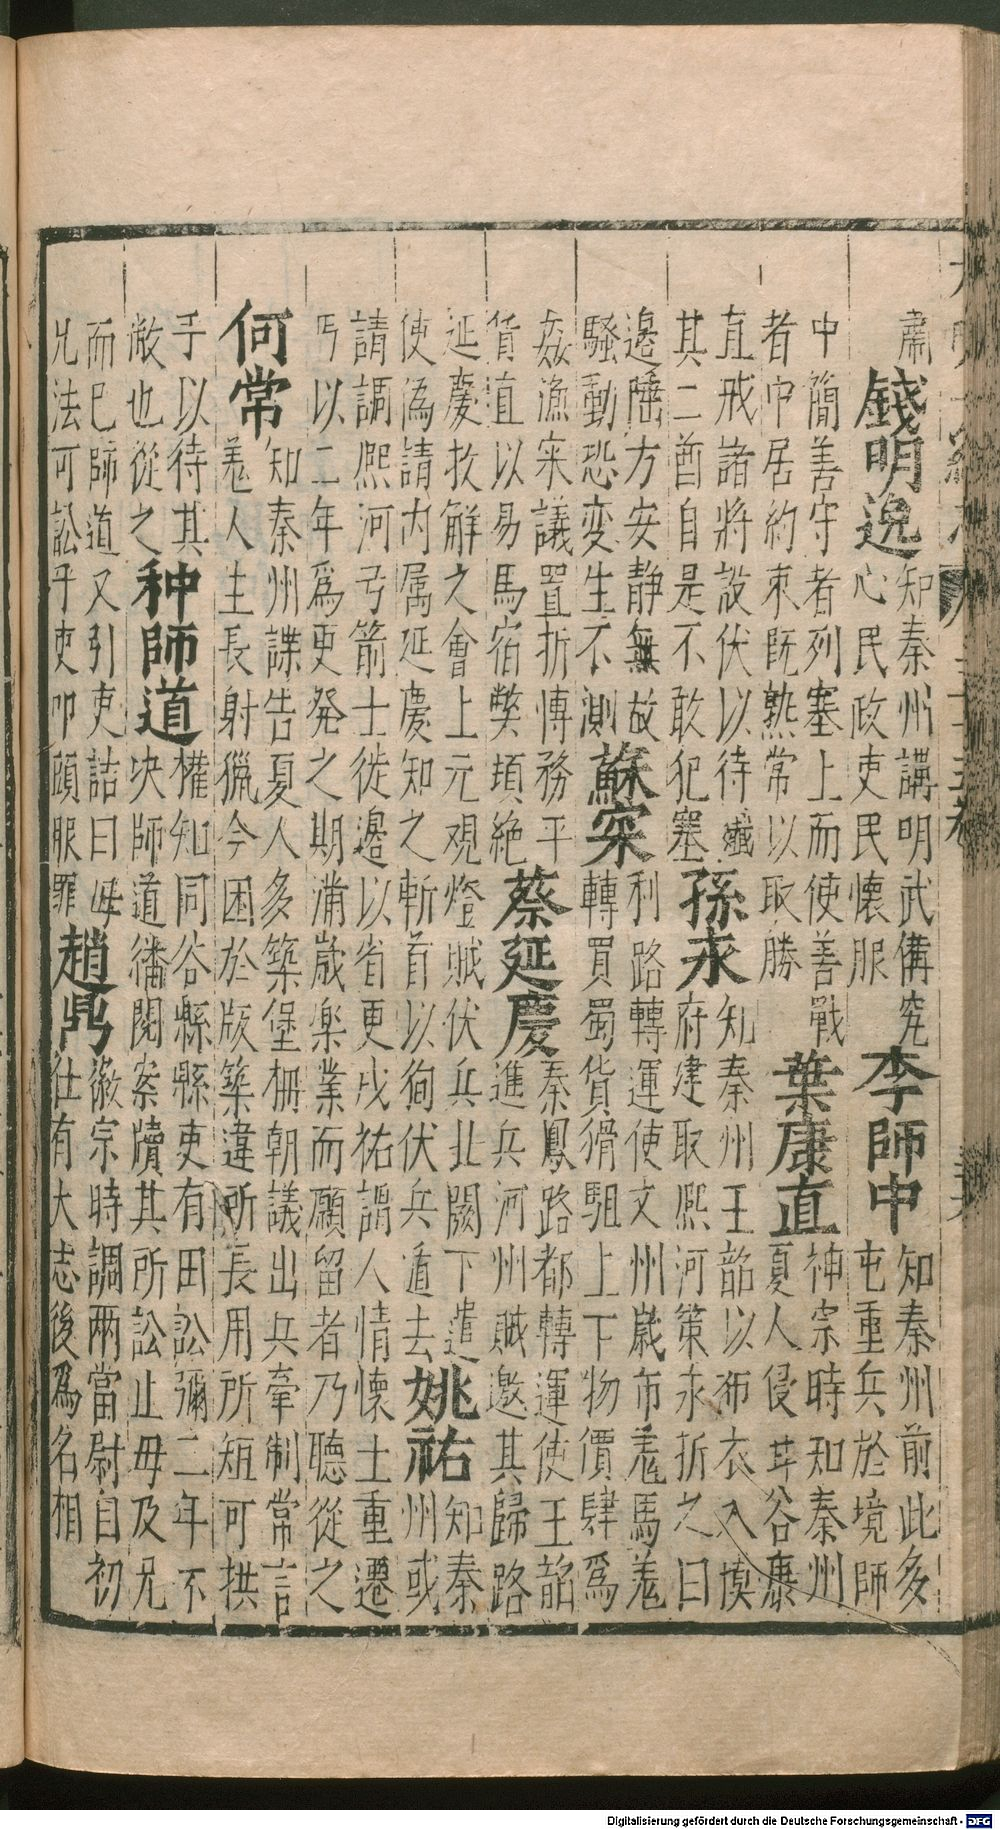 肅錢明逸知秦州講明武備究心民政吏民懷服李師中知秦州前此多屯重兵於境師
中簡善守者列塞上而使善戰者中居約束既熟常以取勝葉康直神宗時知秦州夏人侵甘谷康
直戒諸將設伏以待殱其二酋自是不敢犯塞孫永知秦州王韶以布衣入幙府建取熙河策永折之曰
邊陲方安静無故騷動恐变生不測蘇寀利路轉運使文州歲市羗馬羗轉買蜀貨猾駔上下物價肆爲
姦漁寀議置折博務平貨直以易馬宿獘頓絶蔡延慶秦鳳路都轉運使王韶進兵河州賊邀其歸路
延慶救解之會上元觀燈賊伏兵北闕下遣使爲請内属延慶知之斬首以徇伏兵遁去姚祐知秦州或
請調熙河弓箭士徙邊以省更戍祐謂人情懷土重遷丐以二年爲更発之期滿歲樂業而願留者乃聽從之
何常知秦州諜告夏人多築堡柵朝議出兵牽制常言羗人生長射獵今困於版築違所長用所短可拱
手以待其敝也從之种師道權知同谷縣縣吏有田訟彌二年不决師道繙閱案牘其所訟止毋及兄
而已師道又引吏詰曰毋兄法可訟乎吏叩頭服罪趙鼎徽宗時調兩當尉自初仕有大志後爲名相
Digitalisierung gefördert durch die Deutsche Forschungsgemeinschaft - DFG